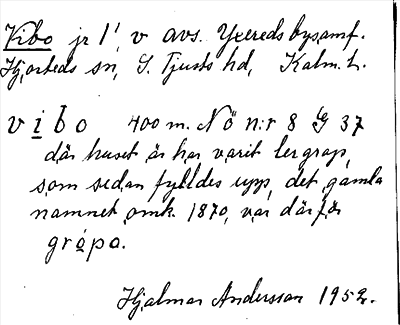 Vibo jr 1' v avs. Yxereds bysamf.
Hjorteds sn, S. Tjusts hd, Kalm. L.
vibo 400 m. NÖ n:r 8 G 37
där huset är har varit lergrop,
som sedan fylldes upp, det gamla
namnet omk. 1870, var därför
gropa.
Hjalmar Andersson 1952.